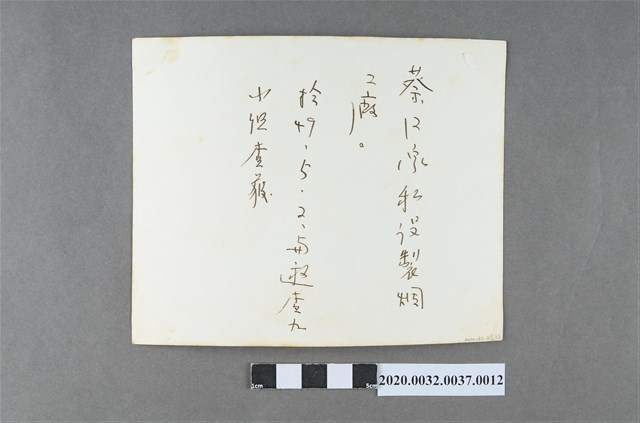 蔡江泉私設製烟
工廠。
於49.5.2.南巡查九
小组查获
1cm 5cm
2020.0032.0037.0012